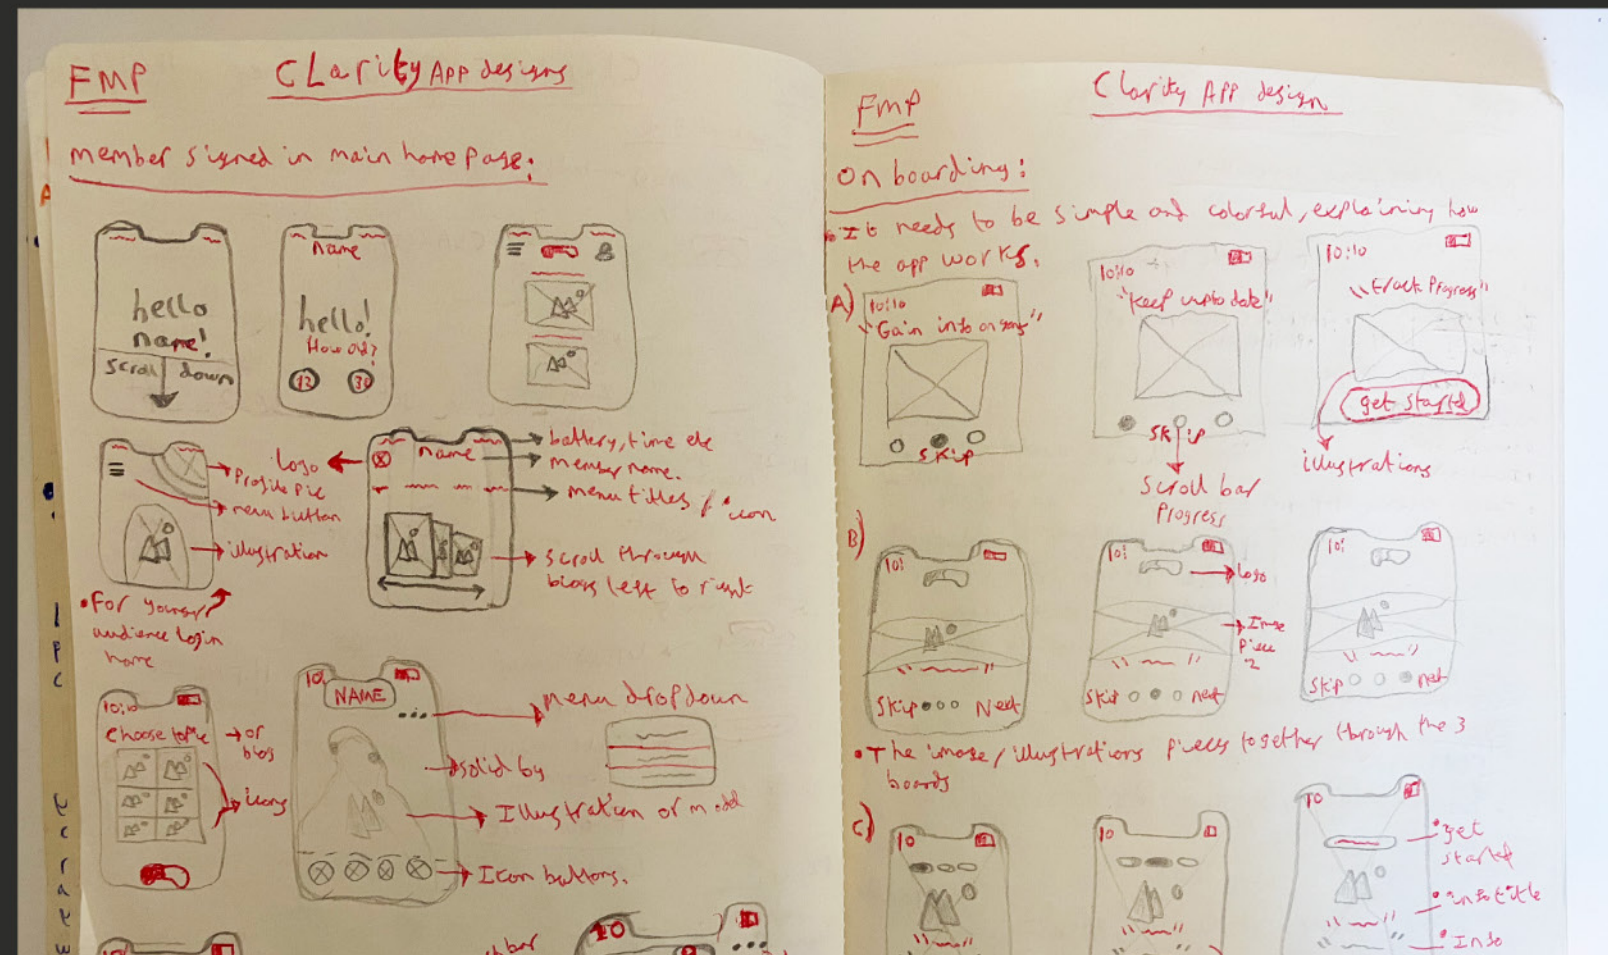 FMP
CLarity APP designs
member signed in main home page:
hello
name!
scroll down
name
hello!
How old?
13
30
Logo
Profile pic
menu button
illustration
name
battery, time etc
member name.
menu titles / icon
scroll through
blogs left to right
• For younger
audience login
home
10:10
Choose topic
or
blogs
icons
10:
NAME
menu dropdown
solid bg
Illustration or model
Icon buttons.
bar
10
FMP
Clarity APP design
On boarding:
• It needs to be simple and colorful, explaining how
the app works.
A)
10:10
"Gain info on
skip
10:10
"Keep up to date"
SKip
scroll bar
Progress
10:10
"track Progress"
get started
illustrations
B)
10:
Skip
Next
10:
Logo
Image
piece
2
Skip
next
10:
Skip
next
• The image/illustrations pieces together through the 3
boards
C)
10
10
10
• get
started
• info title
• Info